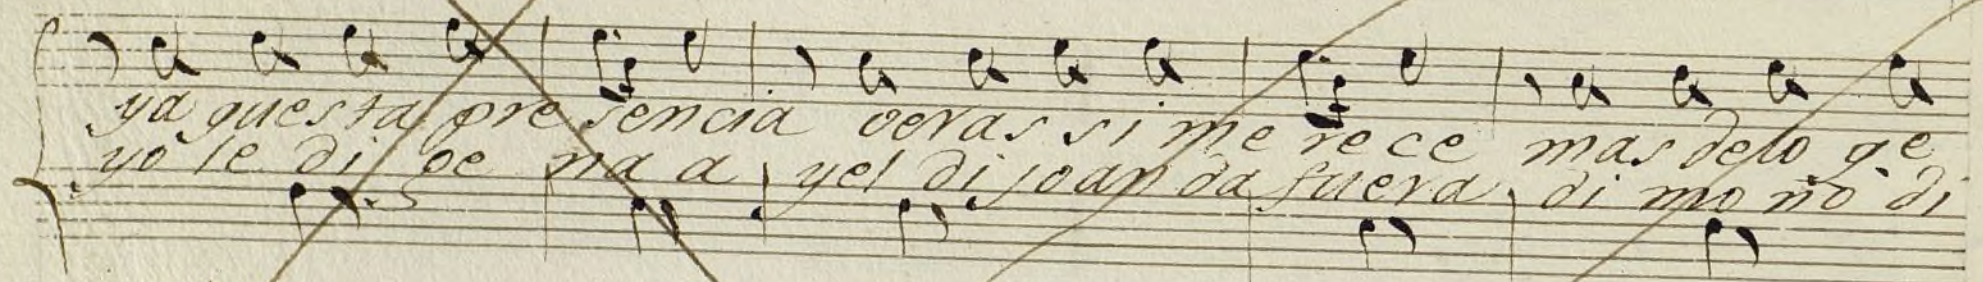 ya questa presencia veras si merece mas de lo qe
yo le di pe na a yel dijo anda fuera di mo ño di